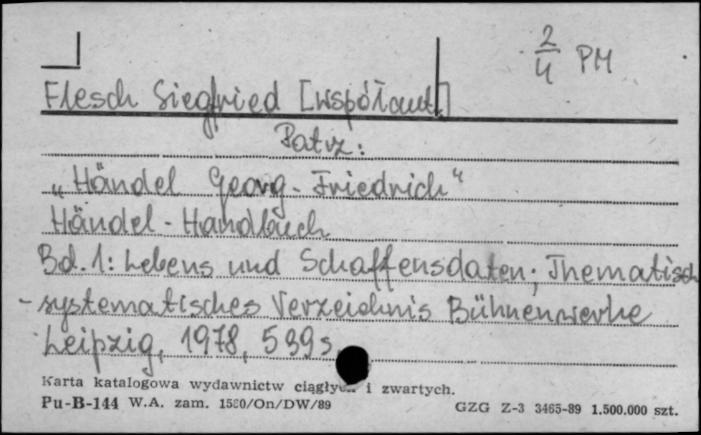 2/4 PM
Flesch Siegfried [współaut.]
Patrz:
„Händel Georg-Friedrich"
Händel-Handbuch
Bd. 1: Lebens und Schaffensdaten; Thematisch
-systematisches Verzeichnis Bühnenwerke
Leipzig, 1978, 539 s.
Karta katalogowa wydawnictw ciągłych i zwartych.
Pu-B-144 W.A. zam. 1560/On/DW/89 GZG Z-3 3465-89 1.500.000 szt.